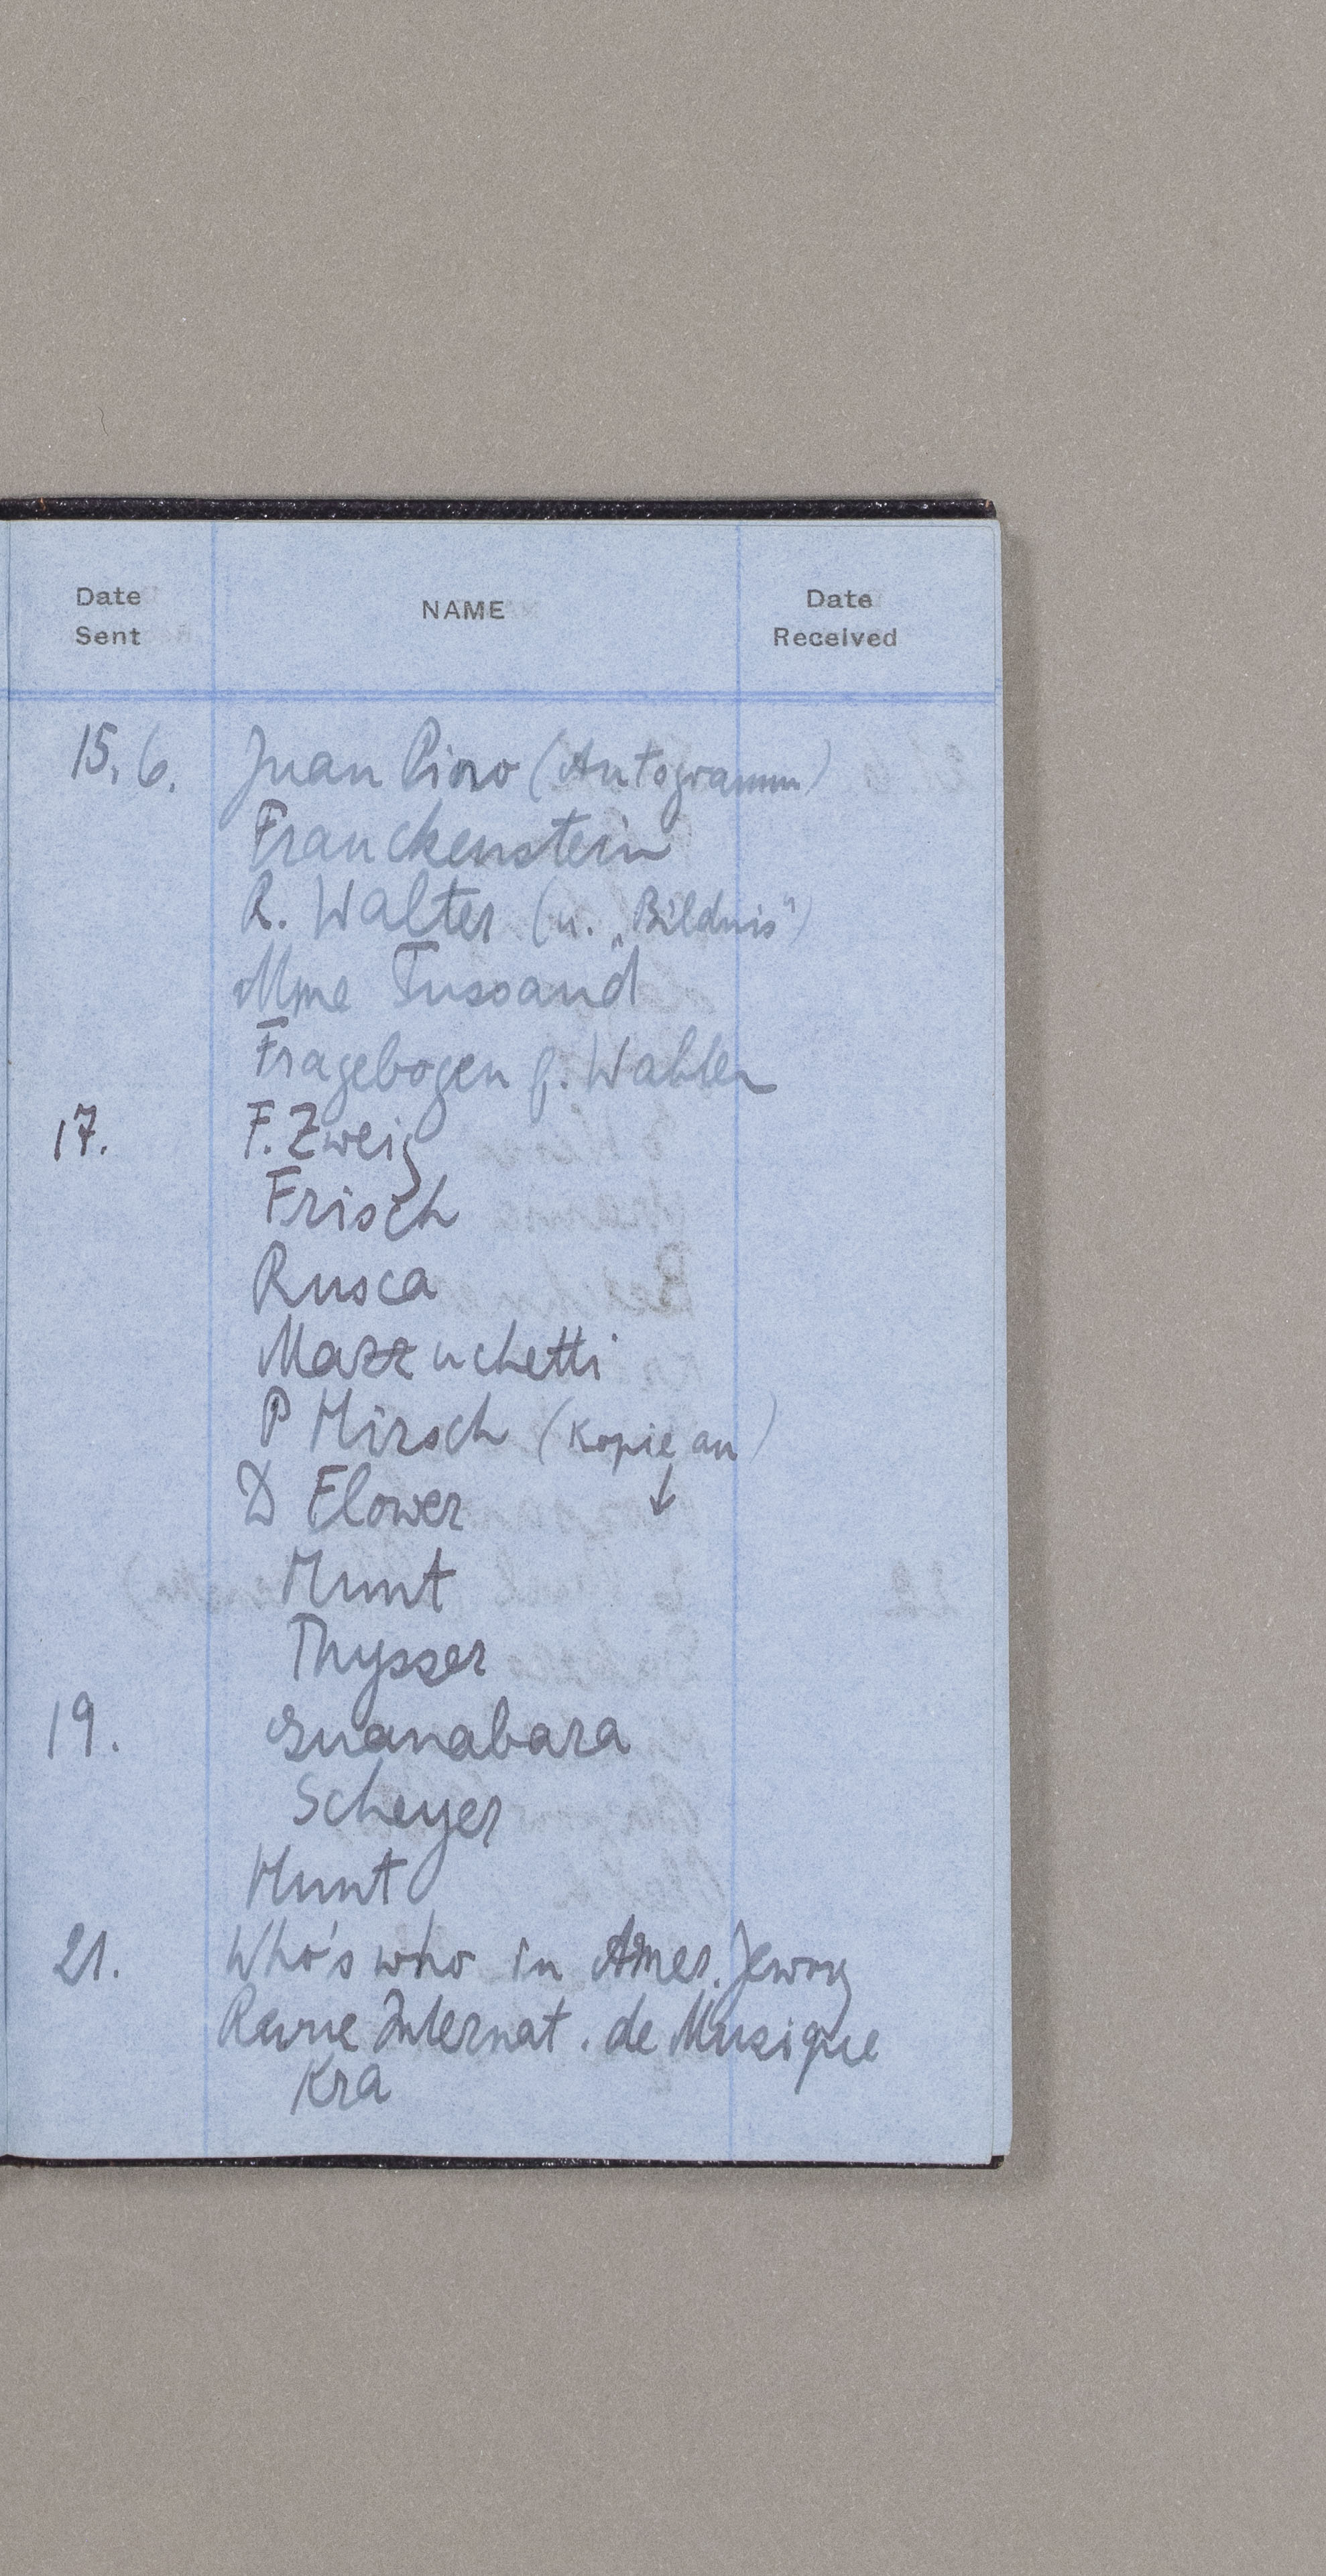 Date Sent NAME Date Received
15. 6. Juan Pino (Autogramm)
Franckenstein
R. Walter (u. „Bildnis")
Mme Tussaud
Fragebogen f. Wahlen
17. F. Zweig
Frisch
Rusca
Mazzuchetti
P Hirsch (Kopie an)
D Flower ↓
Hunt
Thysser
19. Guanabara
Scheyer
Hunt
21. Who's who in Amer. Jewry
Revue Internat. de Musique
Kra